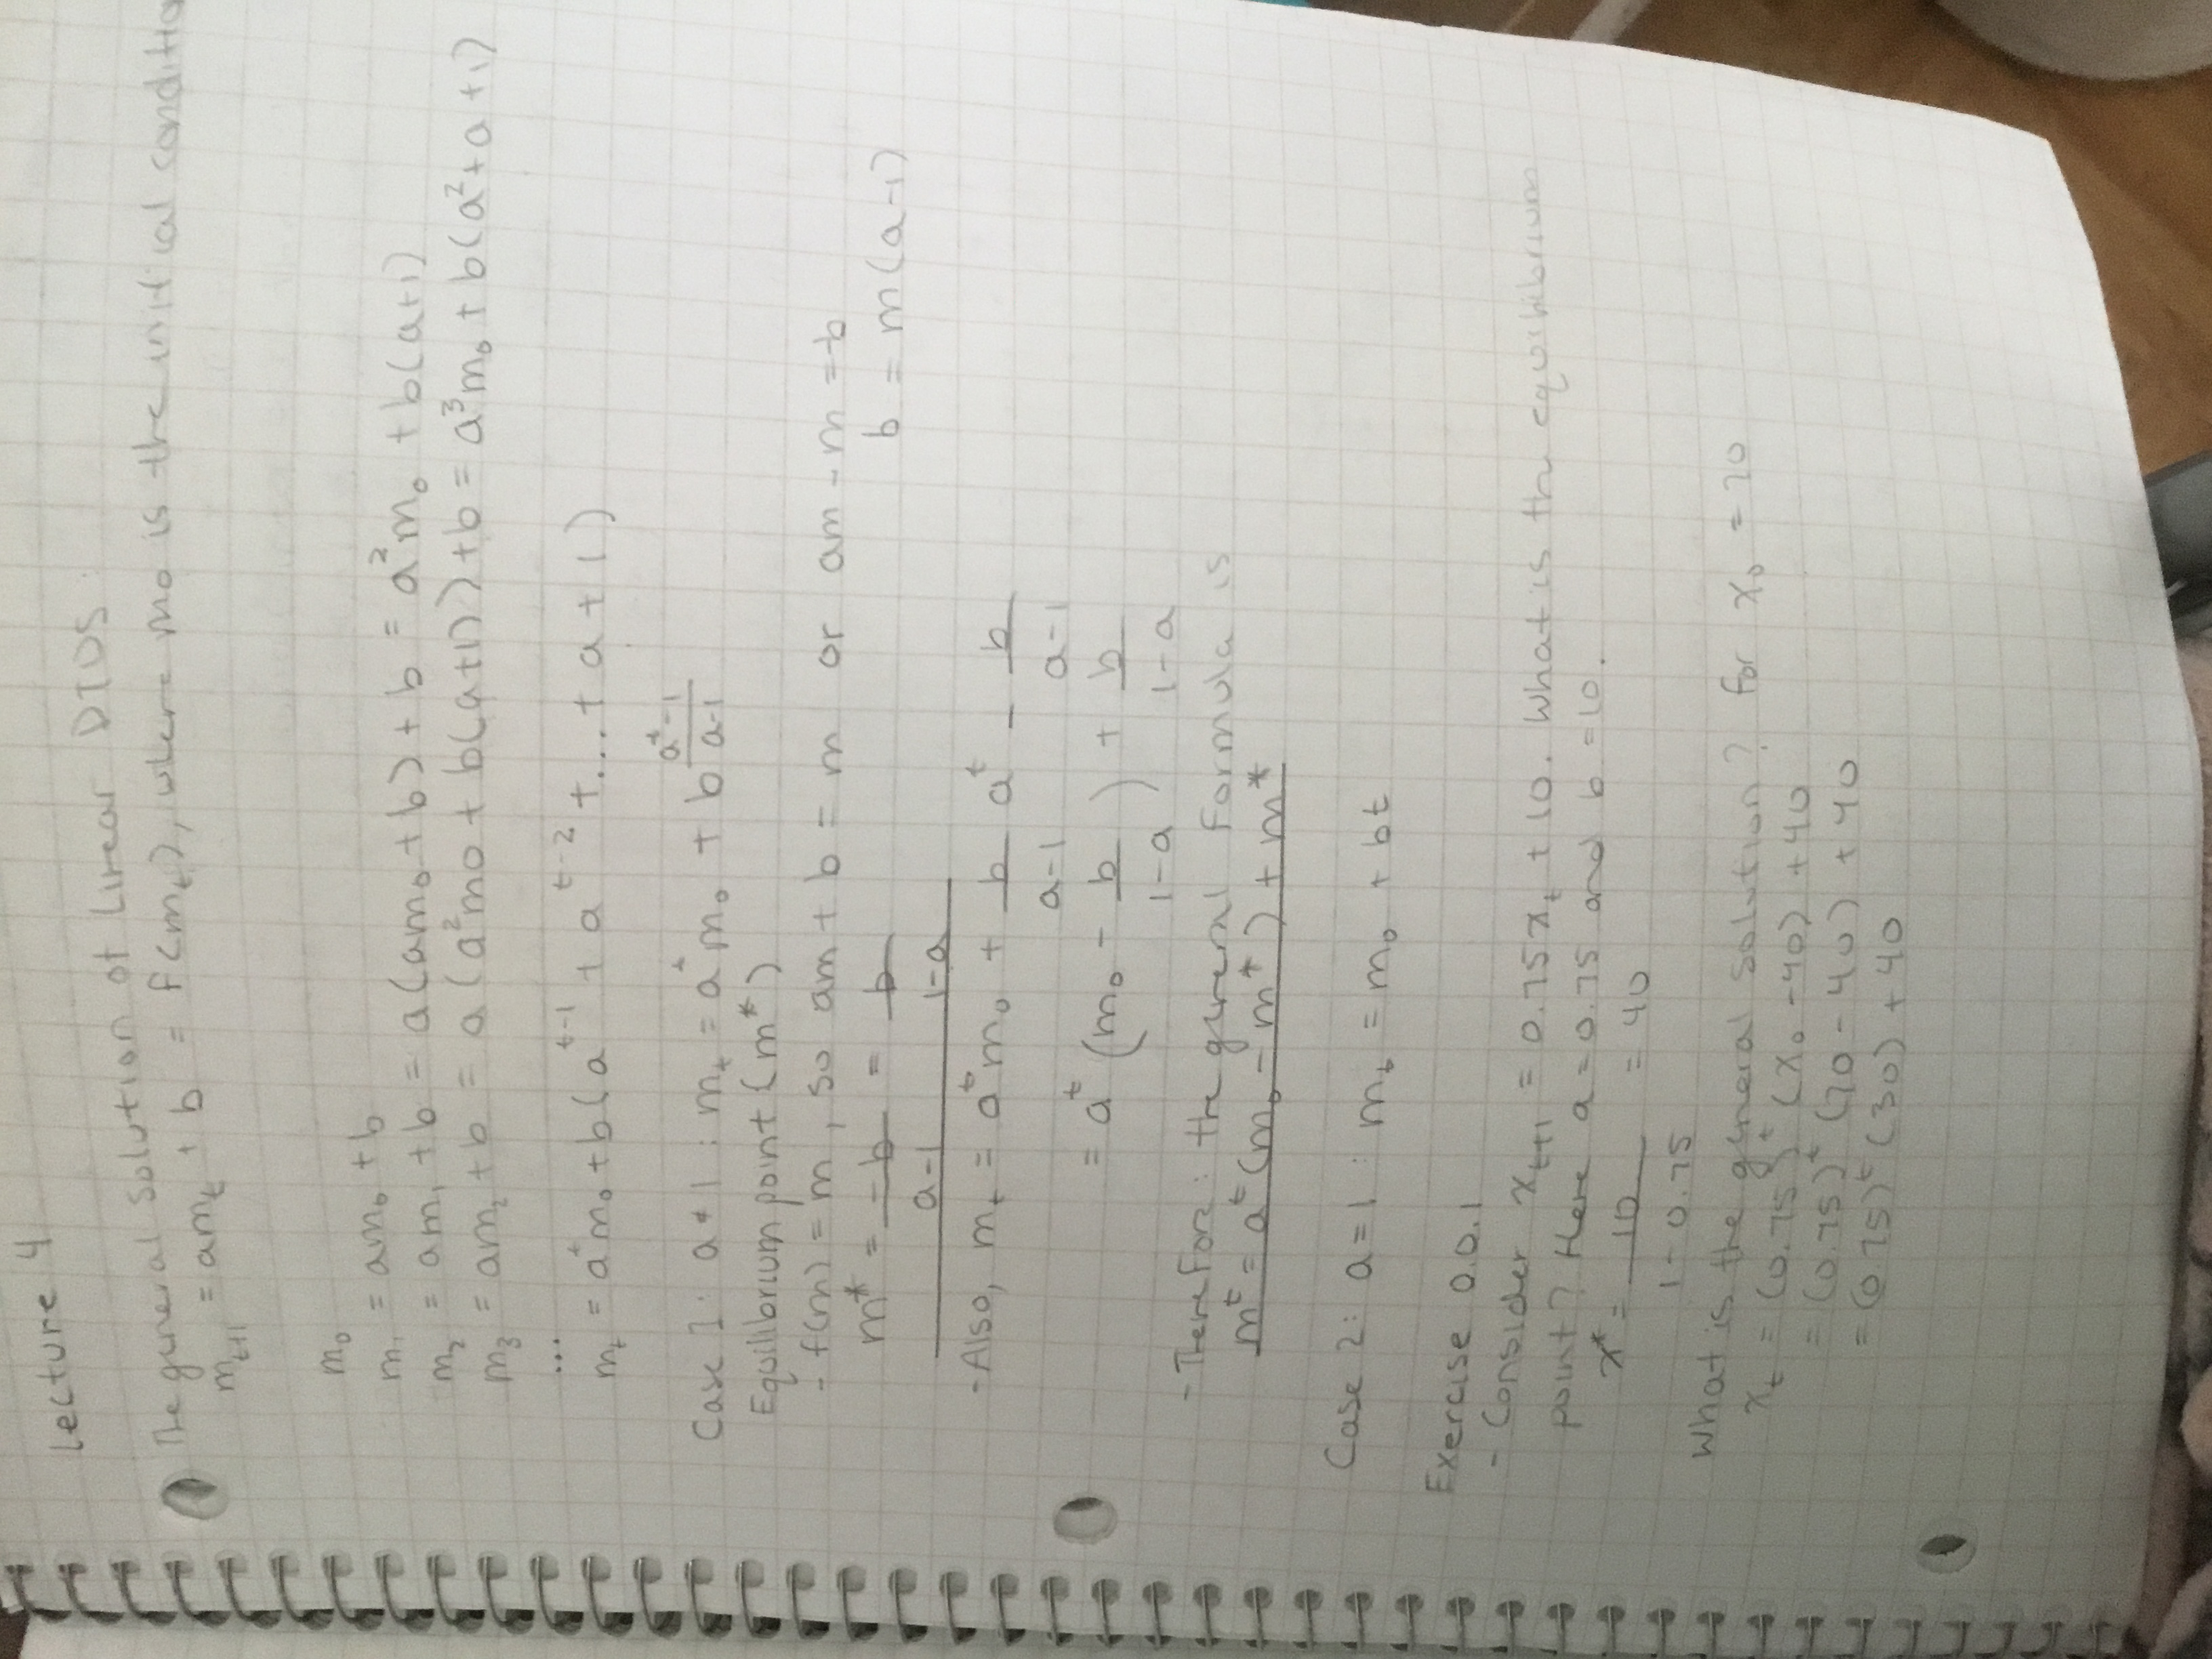 Lecture 4
The general solution of Linear DTDS:
m_{t+1} = am_t + b = f(m_t), where mo is the initial conditio
m_0
m_1 = am_0 + b
m_2 = am_1 + b = a(am_0 + b) + b = a^2m_0 + b(a+1)
m_3 = am_2 + b = a(a^2mo + b(a+1)) + b = a^3m_0 + b(a^2+a+1)
...
m_t = a^tm_0 + b(a^{t-1} + a^{t-2} + ... + a + 1)
Case 1: a≠1 : m_t = a^tm_0 + b \frac{a^t-1}{a-1}
Equilibrium point (m*)
- f(m) = m, so am + b = m or am - m = -b
b = m(a-1)
m* = \frac{-b}{a-1} = \frac{b}{1-a}
- Also, m_t = a^tm_0 + \frac{b}{a-1} a^t - \frac{b}{a-1}
= a^t (m_0 - \frac{b}{1-a}) + \frac{b}{1-a}
- Therefore: the general formula is
m^t = a^t (m_0 - m*) + m*
Case 2: a = 1 : m_t = m_0 + bt
Exercise 0.0.1
- Consider x_{t+1} = 0.75x_t + 10. What is the equilibrium
point? Here a = 0.75 and b = 10.
x* = \frac{10}{1-0.75} = 40
What is the general solution? for x_0 = 70
x_t = (0.75)^t (x_0 - 40) + 40
= (0.75)^t (70 - 40) + 40
= (0.75)^t (30) + 40